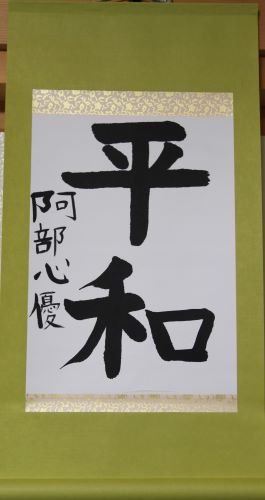 平和
阿部心優